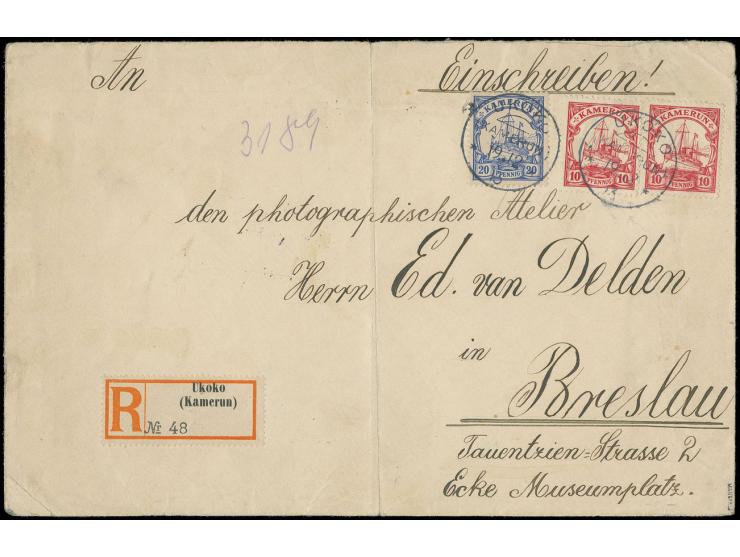 An
Einschreiben!
3189
KAMERUN
20 PFENNIG 20
KAMERUN
10 PFENNIG 10
KAMERUN
10 PFENNIG 10
UKOKO
KAMERUN
den photographischen Atelier
Herrn Ed. van Delden
in
Breslau
Tauentzien=Strasse 2
Ecke Museumplatz.
R
Ukoko
(Kamerun)
№ 48